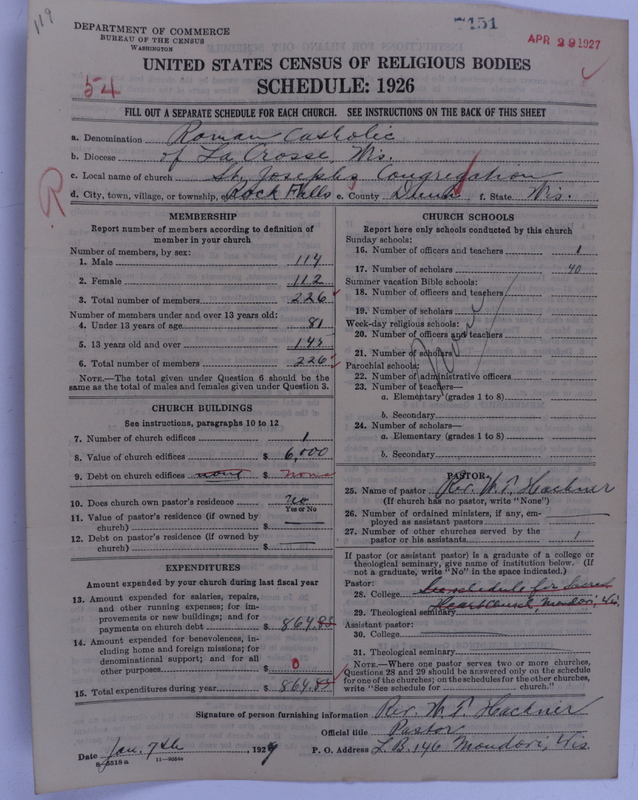 119
DEPARTMENT OF COMMERCE
BUREAU OF THE CENSUS
WASHINGTON
7151
APR 29 1927
UNITED STATES CENSUS OF RELIGIOUS BODIES
SCHEDULE: 1926
54
FILL OUT A SEPARATE SCHEDULE FOR EACH CHURCH. SEE INSTRUCTIONS ON THE BACK OF THIS SHEET
a. Denomination Roman Catholic
b. Diocese of La Crosse, Wis.
c. Local name of church St. Joseph's Congregation
d. City, town, village, or township, etc. Rock Falls e. County Dunn f. State Wis.
R
MEMBERSHIP
Report number of members according to definition of member in your church
Number of members, by sex:
1. Male 114
2. Female 112
3. Total number of members 226
Number of members under and over 13 years old:
4. Under 13 years of age 81
5. 13 years old and over 145
6. Total number of members 226
NOTE.—The total given under Question 6 should be the same as the total of males and females given under Question 3.
CHURCH BUILDINGS
See instructions, paragraphs 10 to 12
7. Number of church edifices 1
8. Value of church edifices $ 6,000
9. Debt on church edifices none $ None
10. Does church own pastor's residence? No
Yes or No
11. Value of pastor's residence (if owned by church) $
12. Debt on pastor's residence (if owned by church) $
EXPENDITURES
Amount expended by your church during last fiscal year
13. Amount expended for salaries, repairs, and other running expenses; for improvements or new buildings; and for payments on church debt $ 864.85
14. Amount expended for benevolences, including home and foreign missions; for denominational support; and for all other purposes $ 0
15. Total expenditures during year $ 864.85
CHURCH SCHOOLS
Report here only schools conducted by this church
Sunday schools:
16. Number of officers and teachers 1
17. Number of scholars 40
Summer vacation Bible schools:
18. Number of officers and teachers
19. Number of scholars
Week-day religious schools:
20. Number of officers and teachers
21. Number of scholars
Parochial schools:
22. Number of administrative officers
23. Number of teachers—
a. Elementary (grades 1 to 8)
b. Secondary
24. Number of scholars—
a. Elementary (grades 1 to 8)
b. Secondary
PASTOR
25. Name of pastor Rev. W. P. Hackner
(If church has no pastor, write "None")
26. Number of ordained ministers, if any, employed as assistant pastors
27. Number of other churches served by the pastor or his assistants 1
If pastor (or assistant pastor) is a graduate of a college or theological seminary, give name of institution below. (If not a graduate, write "No" in the space indicated.)
Pastor:
28. College See schedule for Sacred
29. Theological seminary Heart Church, Mondovi, Wis.
Assistant pastor:
30. College
31. Theological seminary
NOTE.—Where one pastor serves two or more churches, Questions 28 and 29 should be answered only on the schedule for one of the churches; on the schedules for the other churches, write "See schedule for ........ church."
Signature of person furnishing information Rev. W. P. Hackner
Official title Pastor
Date Jan. 7th, 1927 P. O. Address L.B. 146 Mondovi, Wis.
8-5518 a